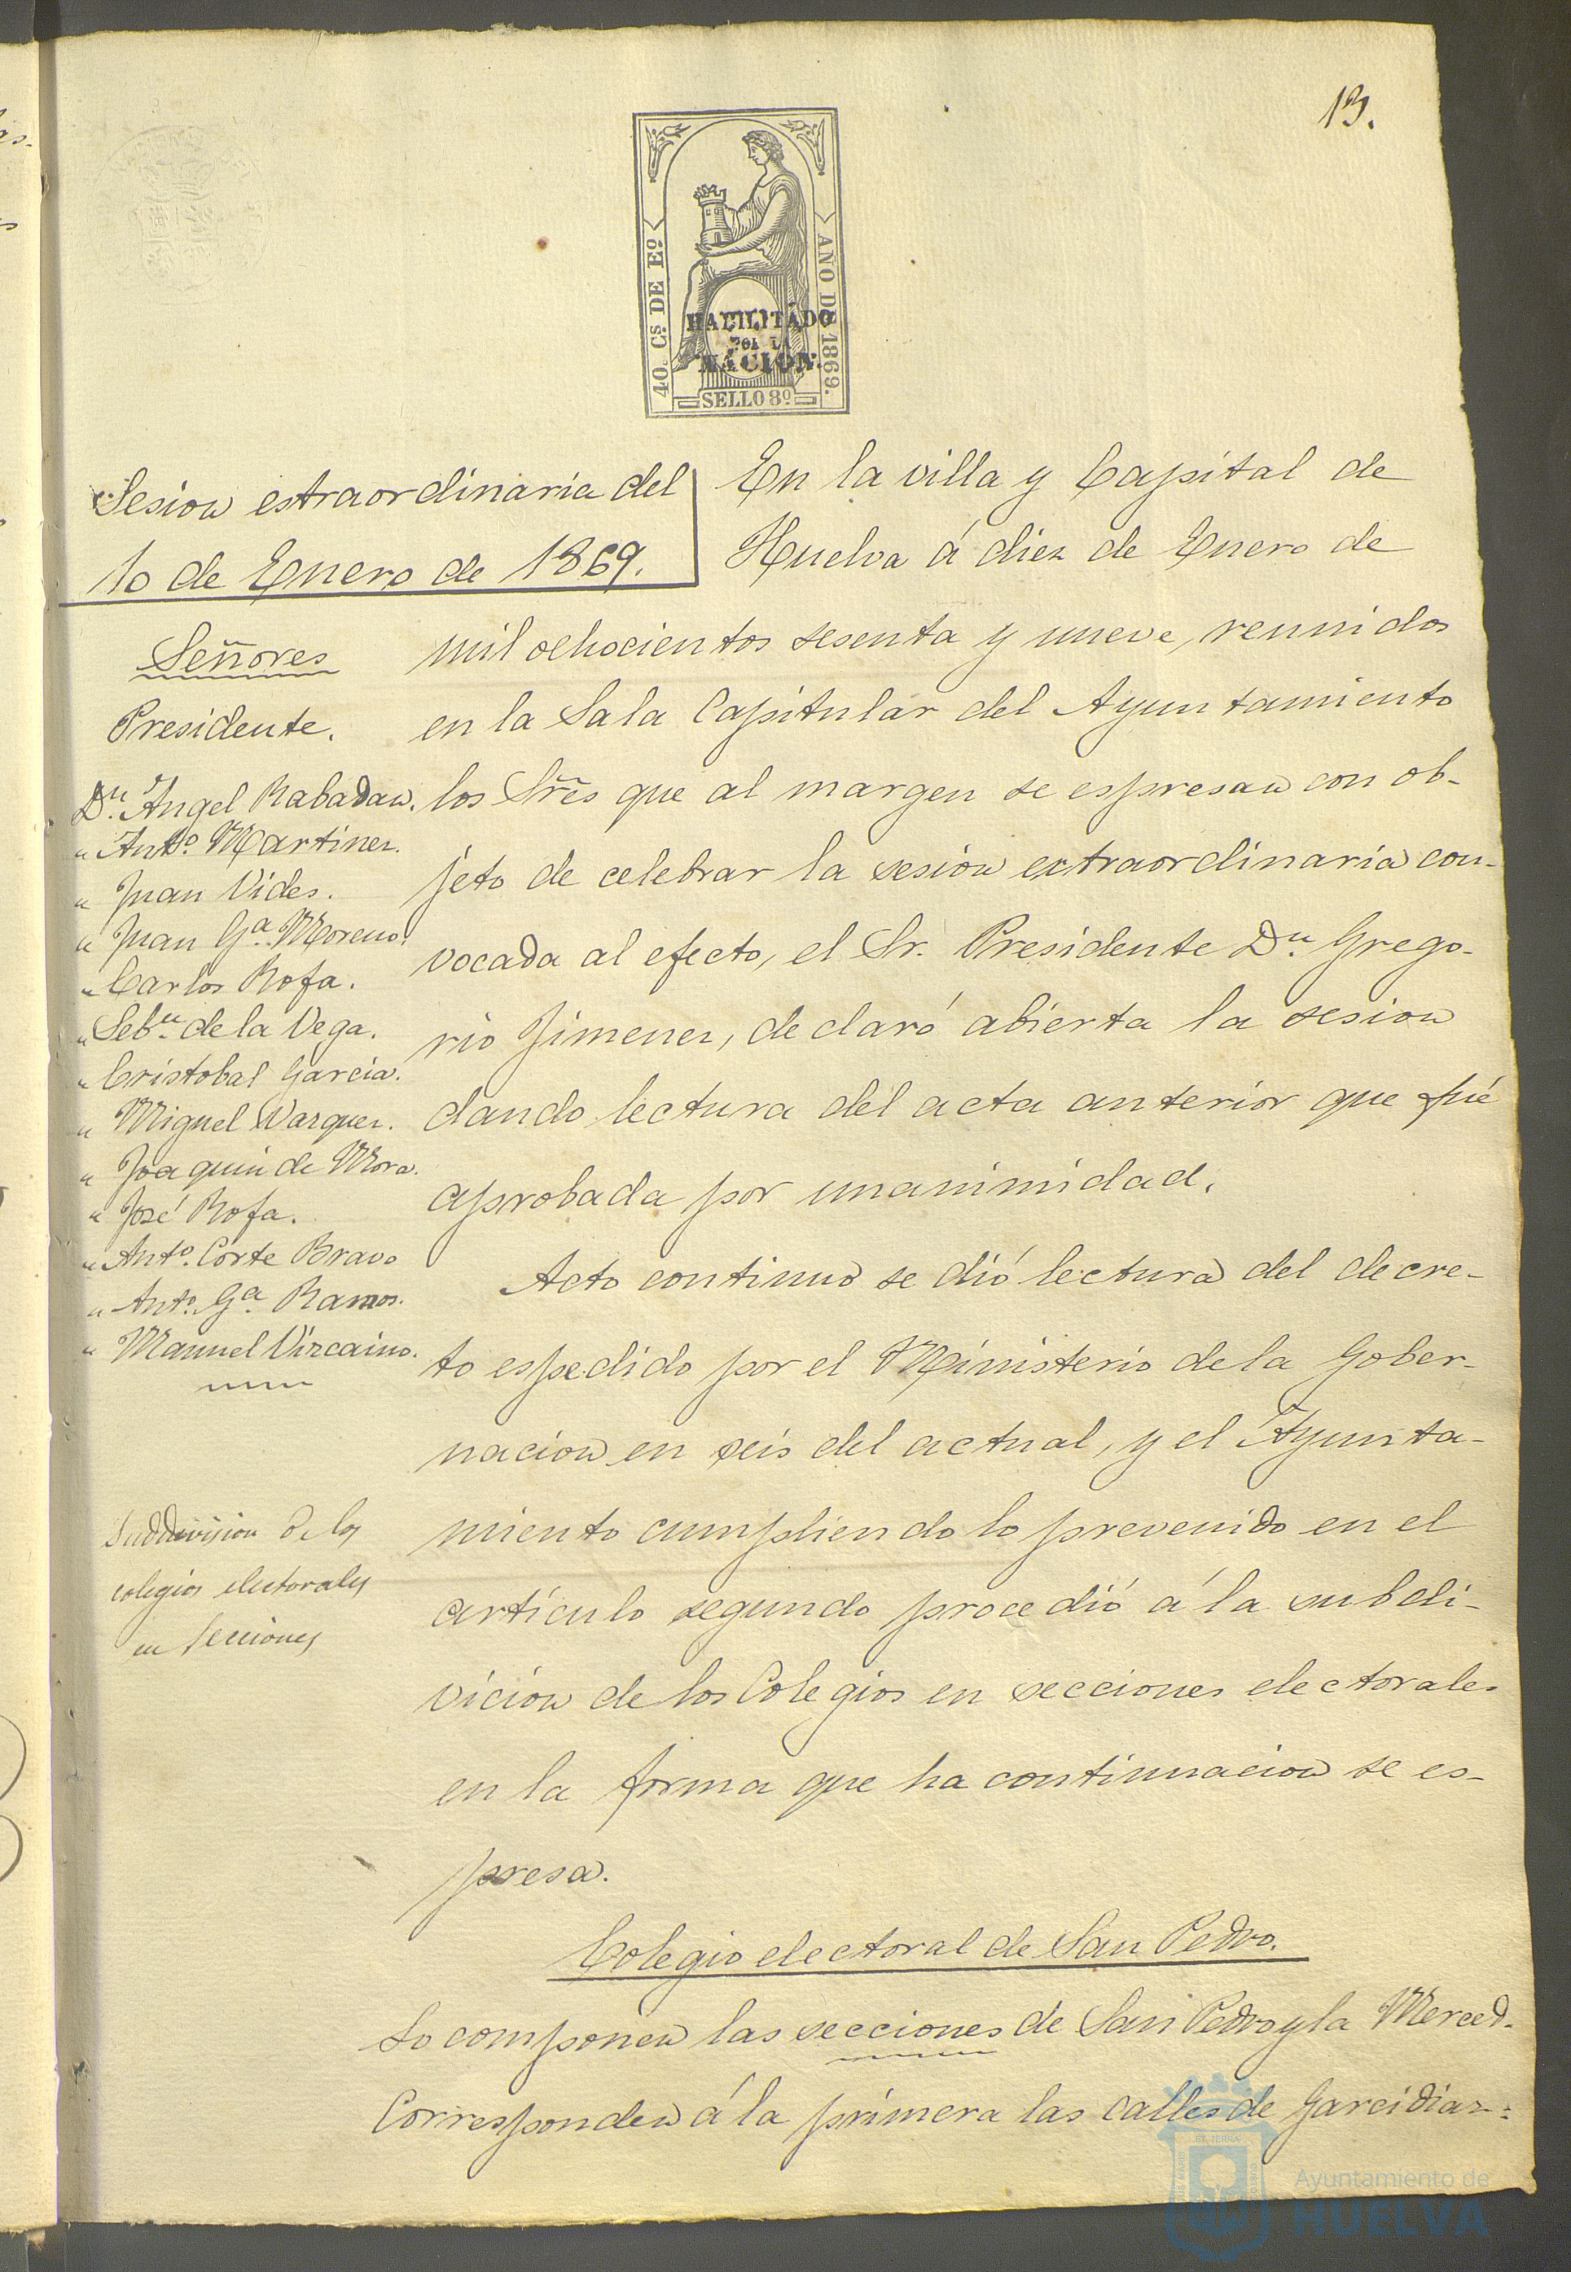 13.
40. Cs. DE Eo.
AÑO DE 1869.
HABILITADO
POR LA
NACION.
SELLO 8o.
Sesion estraordinaria del
10 de Enero de 1869.
Señores
Presidente.
Dn. Angel Rabadan.
" Anto. Martinez.
" Juan Vides.
" Juan Ga. Moreno.
" Carlos Rofa.
" Sebn. de la Vega.
" Cristobal Garcia.
" Miguel Vazquez.
" Joaquin de Mora.
" José Rofa.
" Anto. Corte Bravo
" Anto. Ga. Ramos.
" Manuel Vizcaino.
Subdivision de los
colegios electorales
en secciones
En la villa y Capital de
Huelva á diez de Enero de
mil ochocientos sesenta y nueve, reunidos
en la Sala Capitular del Ayuntamiento
los Sres. que al margen se espresan con ob-
jeto de celebrar la sesion extraordinaria con-
vocada al efecto, el Sr. Presidente Dn. Grego-
rio Jimenez, declaró abierta la sesion
dando lectura del acta anterior que fué
aprobada por unanimidad.
Acto continuo se dió lectura del decre-
to espedido por el Ministerio de la Gober-
nacion en seis del actual, y el Ayunta-
miento cumpliendo lo prevenido en el
artículo segundo procedió á la subdi-
vicion de los Colegios en secciones electorales
en la forma que ha continuacion se es-
presa.
Colegio electoral de San Pedro.
Lo componen las secciones de San Pedro y la Merced.
Corresponden á la primera las calles de Garcidiaz=
Ayuntamiento de
HUELVA